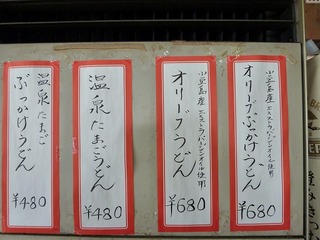 小豆島産 エキストラバージンオイル使用
オリーブぶっかけうどん
¥680
小豆島産 エキストラバージンオイル使用
オリーブうどん
¥680
温泉たまごうどん
¥480
温泉たまご
ぶっかけうどん
¥480